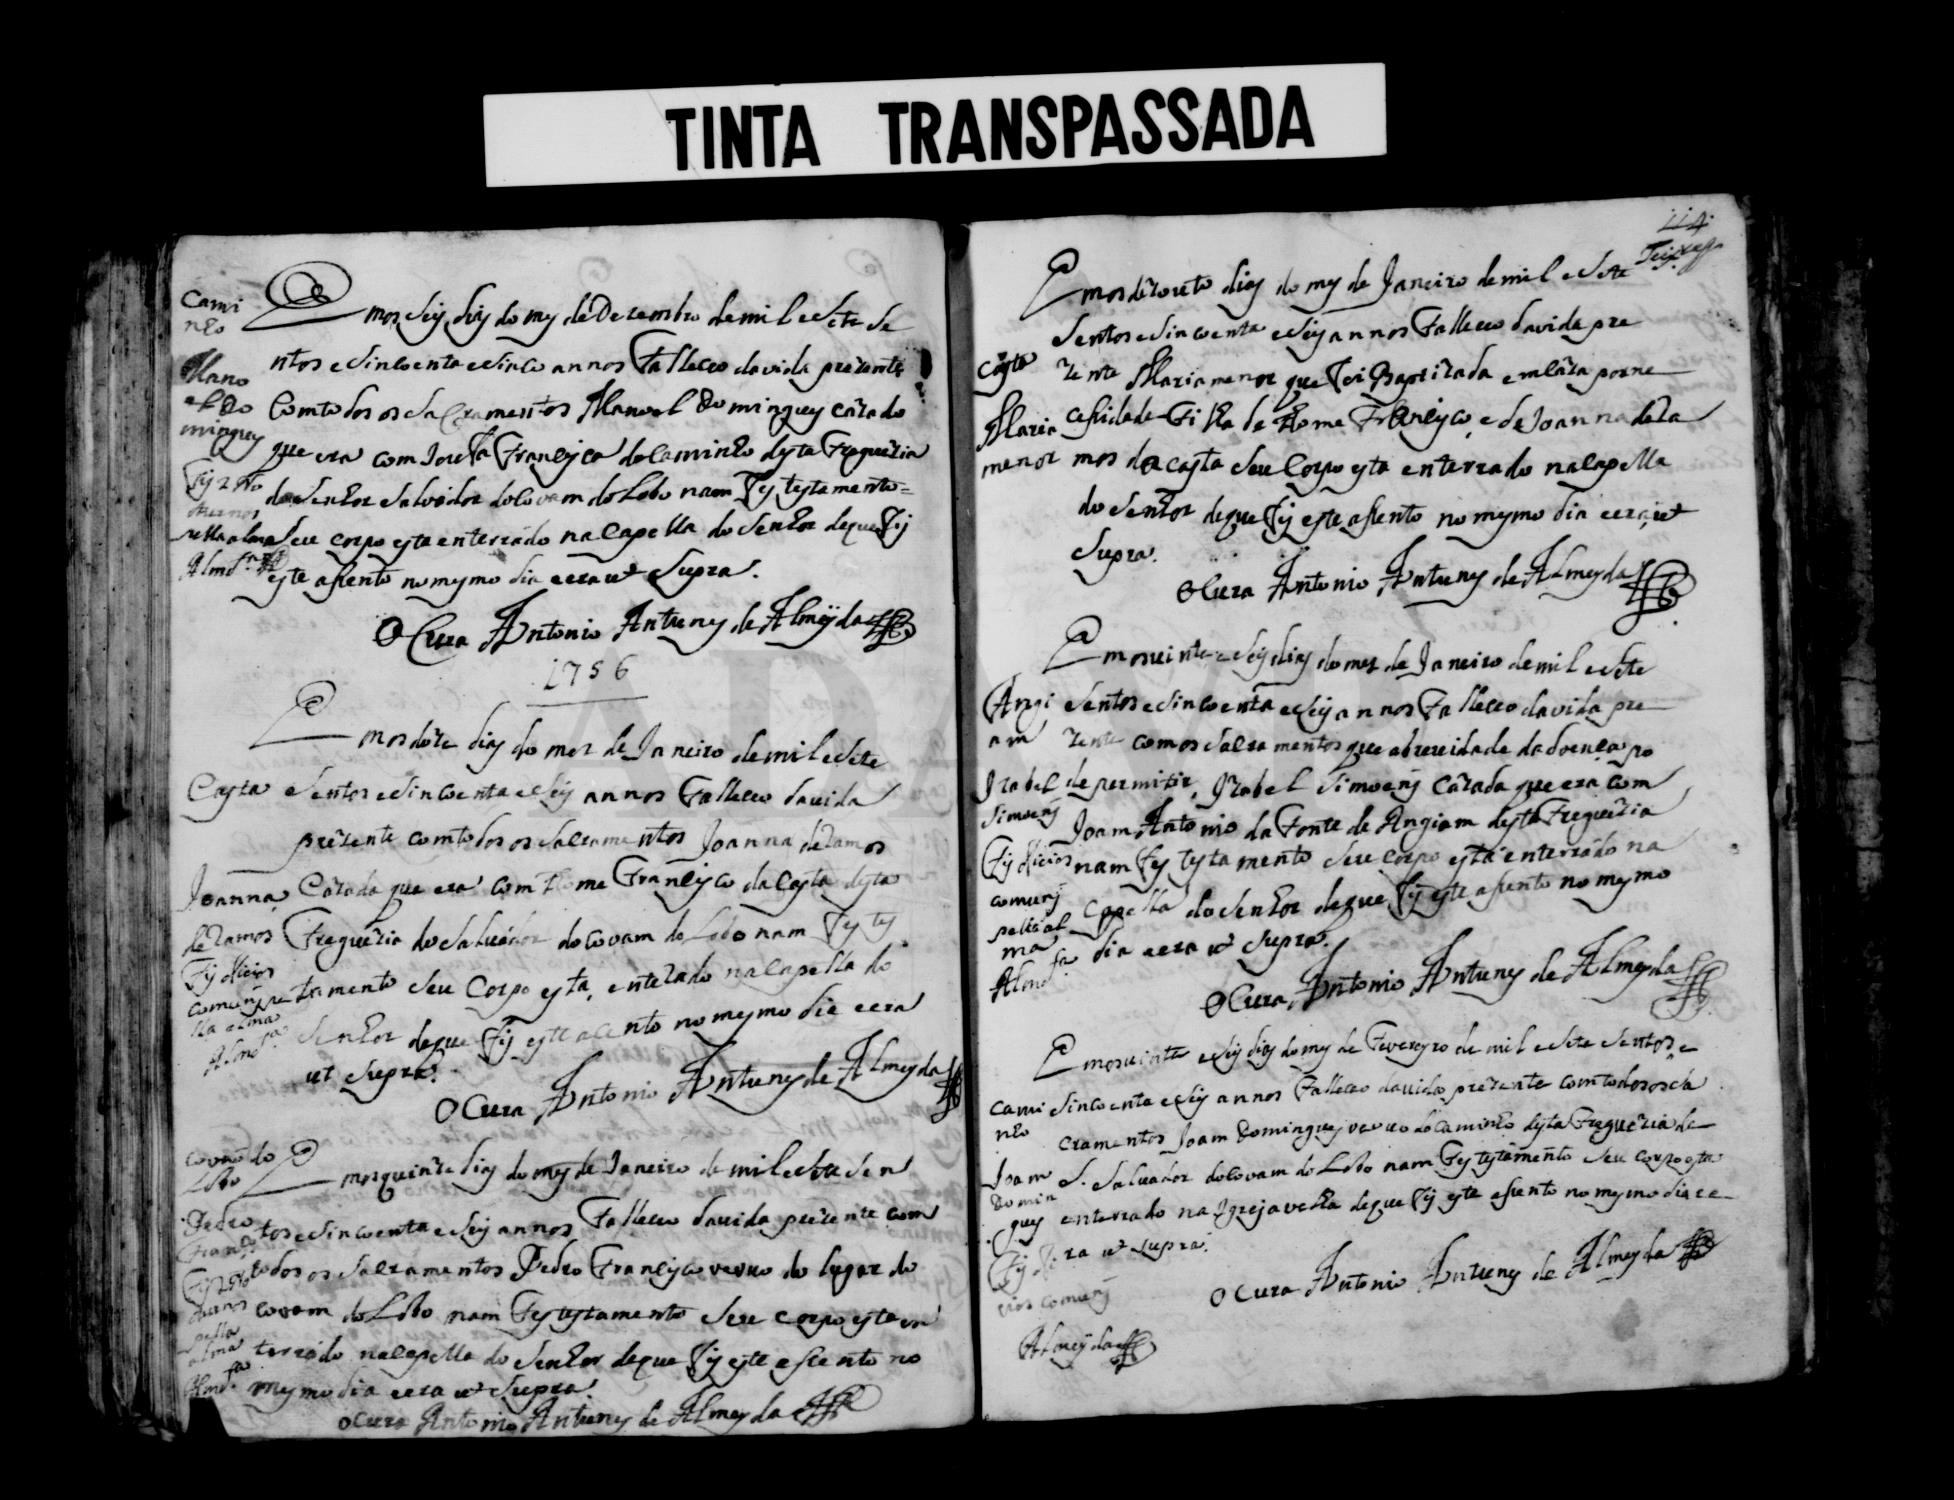 TINTA TRANSPASSADA
Cami
nho
Mano
el Do
mingues
Almdª
Em os seis dias do mes de Dezembro de mil e sete se
ntos e sincoenta e sinco annos Falleceo da vida prezente
Com todos os sacramentos Manoel Domingues cazado
que era com Francisca do Caminho desta Freguezia
do Senhor Salvador do Covam do Lobo nam Fes testamento
seu corpo esta enterrado na Capella do Senhor de que Fis
este asento no mesmo dia e era ut supra.
O Cura Antonio Antunes de Almeyda
1756
Costa
Joanna
de Ramos
Fis oficios
comuns pe
lla alma
Almdª
Em os doze dias do mes de Janeiro de mil e sete
e sentos e sincoenta e seis annos Falleceo da vida
prezente com todos os sacramentos Joanna de Ramos
Cazada que era com Thome Francisco da Costa desta
Freguezia do Salvador do Covam do Lobo nam Fes tes
tamento seu Corpo esta enterado na Capella do
Senhor de que Fis este acento no mesmo dia e era
ut supra.
O Cura Antonio Antunes de Almeyda
Covão do
Lobo
Pedro
Franco
pella
alma
Almdª
Em os quinze dias do mes de Janeiro de mil e sete sen
tos e sincoenta e seis annos Falleceo da vida prezente com
todos os sacramentos Pedro Francisco veuvo do lugar do
covam do Lobo nam Fes testamento seu corpo esta en
terrado na capella do Senhor de que Fis este asento no
mesmo dia e era ut supra.
O Cura Antonio Antunes de Almeyda
114
Em os dezouto dias do mes de Janeiro de mil e sete
sentos e sincoenta e seis annos Falleceo da vida pre
Costa
zente Maria menor que Foi Baptizada em caza por ne
Maria
cesidade Filha de Thome Francisco, e de Joanna de Ra
menor
mos da costa seu Corpo esta enterrado na capella
do Senhor de que Fis este asento no mesmo dia e era ut
supra.
O Cura Antonio Antunes de Almeyda
Em os vinte e seis dias do mes de Janeiro de mil e sete
Angi
am
Izabel
Simoens
Fis oficios
comuns
pella al
ma
Almdª
sentos e sincoenta e seis annos Falleceo da vida pre
zente com os sacramentos que a brevidade da doença po
de permitir, Izabel Simoens Cazada que era com
Joam Antonio da Fonte de Angiam desta Freguezia
nam Fes testamento seu corpo esta enterrado na
Capella do Senhor de que Fis este asento no mesmo
dia e era ut supra.
O Cura Antonio Antunes de Almeyda
Em os vinte e seis dias do mes de Fevereyro de mil e sete sentos e
Cami
nho
Joam
Domin
gues
Fis ofi
cios comuns
Almeyda
sincoenta e seis annos Falleceo da vida prezente com todos os sa
cramentos Joam Domingues veuvo do Caminho desta Freguezia de
S. Salvador do Covam do Lobo nam Fes testamento seu corpo esta
enterrado na Igreja velha de que Fis este asento no mesmo dia e e
ra ut supra.
O Cura Antonio Antunes de Almeyda